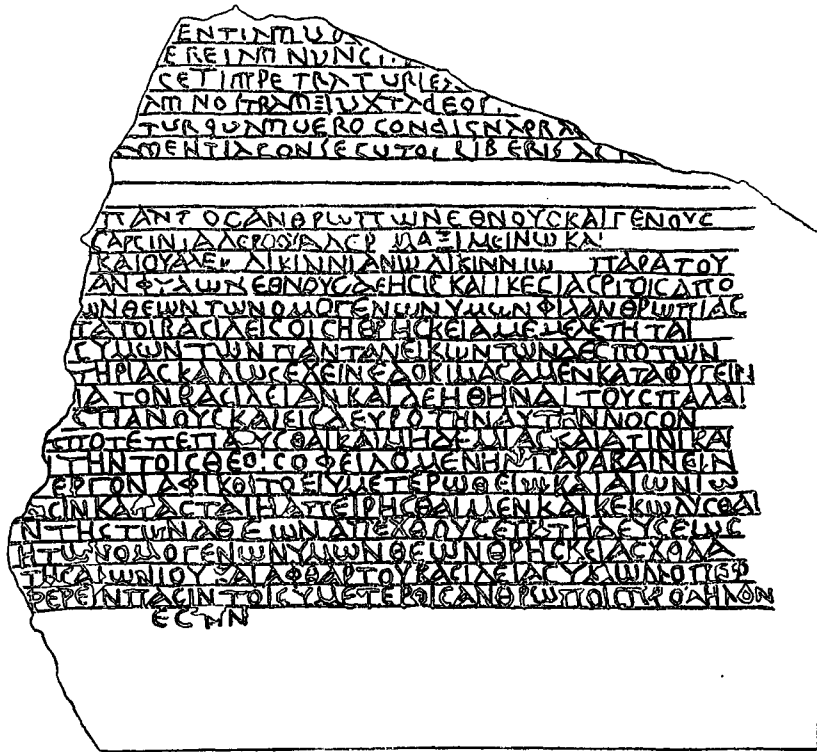 ENTIAMUO
EREIAMNUNCI
CETIMPETRATURIE
AMNOSTRAMEIUXTADEOS
TURQUAMUEROCONDIGNAPRA
AMENTIACONSECUTOSLIBERISAC
ΠΑΝΤΟϹΑΝΘΡΩΠΩΝΕΘΝΟΥϹΚΑΙΓΕΝΟΥϹ
ϹΑΡϹΙΝ ΜΑΞΙΜΕΙΝΩΚΑΙ
ΚΑΙΟΥΑΛΕΡ ΛΙΚΙΝΝΙΑΝΩΛΙΚΙΝΝΙΩ ΠΑΡΑΤΟΥ
ΑΜΦΥΛΩΝΕΘΝΟΥϹΔΕΗϹΙϹΚΑΙΙΚΕϹΙΑϹΡΓΟΙϹΑΠΟ
ΩΝΘΕΩΝΤΩΝΟΜΟΓΕΝΩΝΥΜΩΝΦΙΛΑΝΘΡΩΠΙΑϹ
ΤΑΤΟΙΒΑϹΙΛΕΙϹΟΙϹΗΘΡΗϹΚΕΙΑΜΕΜΕΛΕΤΗΤΑΙ
ϹΥΜΩΝΤΩΝΠΑΝΤΑΝΕΙΚΩΝΤΩΝΔΕϹΠΟΤΩΝ
ΤΗΡΙΑϹΚΑΛΩϹΕΧΕΙΝΕΔΟΚΙΜΑϹΑΜΕΝΚΑΤΑΦΥΓΕΙΝ
ΙΑΤΟΝΒΑϹΙΛΕΙΑΝΚΑΙΔΕΗΘΗΝΑΙΤΟΥϹΠΑΛΑΙ
ϹΤΙΑΝΟΥϹΚΑΙΕΙϹΔΕΥΡΟΤΗΝΑΥΤΗΝΝΟϹΟΝ
ΠΟΤΕΠΕΠΑΥϹΘΑΙΚΑΙΜΗΔΕΜΙΑϹΚΑΙΑΤΙΝΙΚΑ
ΤΗΝΤΟΙϹΘΕΟΙϹΟΦΕΙΛΟΜΕΝΗΝΠΑΡΑΒΑΙΝΕΙΝ
ΕΡΓΟΝΑΦΙΚΟΙΤΟΕΙΥΜΕΤΕΡΩΘΕΙΩΚΑΙΑΙΩΝΙΩ
ΑϹΙΝΚΑΤΑϹΤΑΙΗΑΠΕΙΡΗϹΘΑΙΜΕΝΚΑΙΚΕΚΩΛΥϹΘΑΙ
ΝΤΗϹΤΩΝΑΘΕΩΝΑΠΕΧΘΟΥϹΕΠΙΤΗΔΕΥϹΕΩϹ
ΗΤΩΝΟΜΟΓΕΝΩΝΥΜΩΝΘΕΩΝΘΡΗϹΚΕΙΑϹΧΟΛΑ
ΤΗϹΑΙΩΝΙΟΥΚΑΙΑΦΘΑΡΤΟΥΒΑϹΙΛΕΙΑϹΥΜΩΝΟΠΕΡ
ΦΕΡΕΙΝΠΑϹΙΝΤΟΙϹΥΜΕΤΕΡΟΙϹΑΝΘΡΩΠΟΙϹΠΡΟΔΗΛΟΝ
ΕϹΤΙΝ